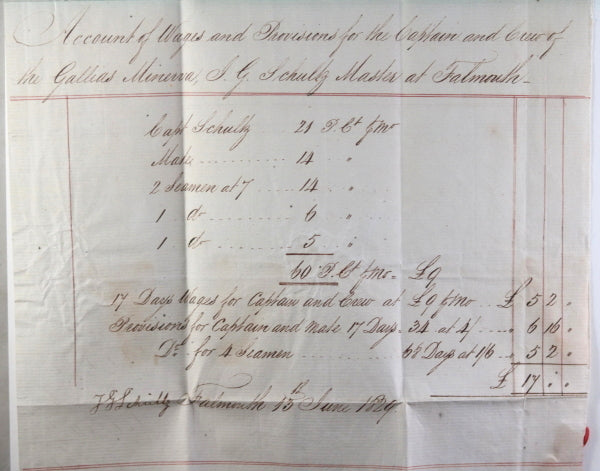 Account of Wages and Provisions for the Captain and Crew of
the Gallias Minerva, J. G. Schultz Master at Falmouth
Capt Schultz 21 P. Ct p Mo
Mate 14 "
2 Seamen at 7 14 "
1 do 6 "
1 do 5 "
60 P. Ct p Mo £9
17 Days Wages for Captain and Crew at £9 p Mo £ 5 2 "
Provisions for Captain and Mate 17 Days 34 at 4/ " 6 16 "
Do for 4 Seamen 68 Days at 1/6 " 5 2 "
£ 17 " "
J G Schultz Falmouth 15th June 1829